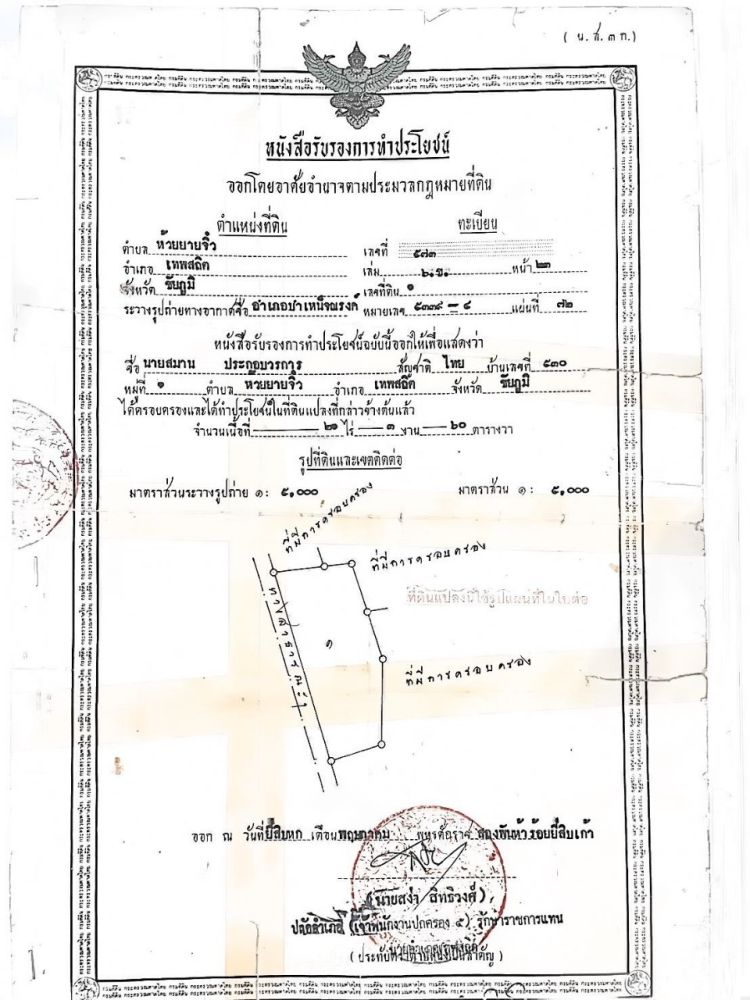 ( น.ส.๓ ก.)
หนังสือรับรองการทำประโยชน์
ออกโดยอาศัยอำนาจตามประมวลกฎหมายที่ดิน
ตำแหน่งที่ดิน ทะเบียน
ตำบล ห้วยยายจิ๋ว เลขที่ ๕๗๓
อำเภอ เทพสถิต เล่ม ๖ข. หน้า ๒๓
จังหวัด ชัยภูมิ เลขที่ดิน ๑
ระวางรูปถ่ายทางอากาศชื่อ อำเภอบำเหน็จณรงค์ หมายเลข ๕๓๓๙ – ๔ แผ่นที่ ๗๒
หนังสือรับรองการทำประโยชน์ฉบับนี้ออกให้เพื่อแสดงว่า
ชื่อ นายสมาน ประกอบวรการ สัญชาติ ไทย บ้านเลขที่ ๕๓๐
หมู่ที่ ๑ ตำบล หวยยายจิ๋ว อำเภอ เทพสถิต จังหวัด ชัยภูมิ
ได้ครอบครองและได้ทำประโยชน์ในที่ดินแปลงที่กล่าวข้างต้นแล้ว
จำนวนเนื้อที่ ๒๑ ไร่ ๓ งาน ๖๐ ตารางวา
รูปที่ดินและเขตติดต่อ
มาตราส่วนระวางรูปถ่าย ๑: ๕,๐๐๐ มาตราส่วน ๑: ๕,๐๐๐
ที่มีการครอบครอง
ที่มีการครอบครอง
ที่ดินแปลงนี้ใช้รูปแผนที่ในใบต่อ
ทางสาธารณะ
๑
ที่มีการครอบครอง
ออก ณ วันที่ ยี่สิบหก เดือน พฤษภาคม พุทธศักราช สองพันห้าร้อยยี่สิบเก้า
(นายสง่า สิทธิวงศ์)
ปลัดอำเภอ (เจ้าพนักงานปกครอง ๕) รักษาราชการแทน
( ประทับตราตำแหน่งเป็นสำคัญ )